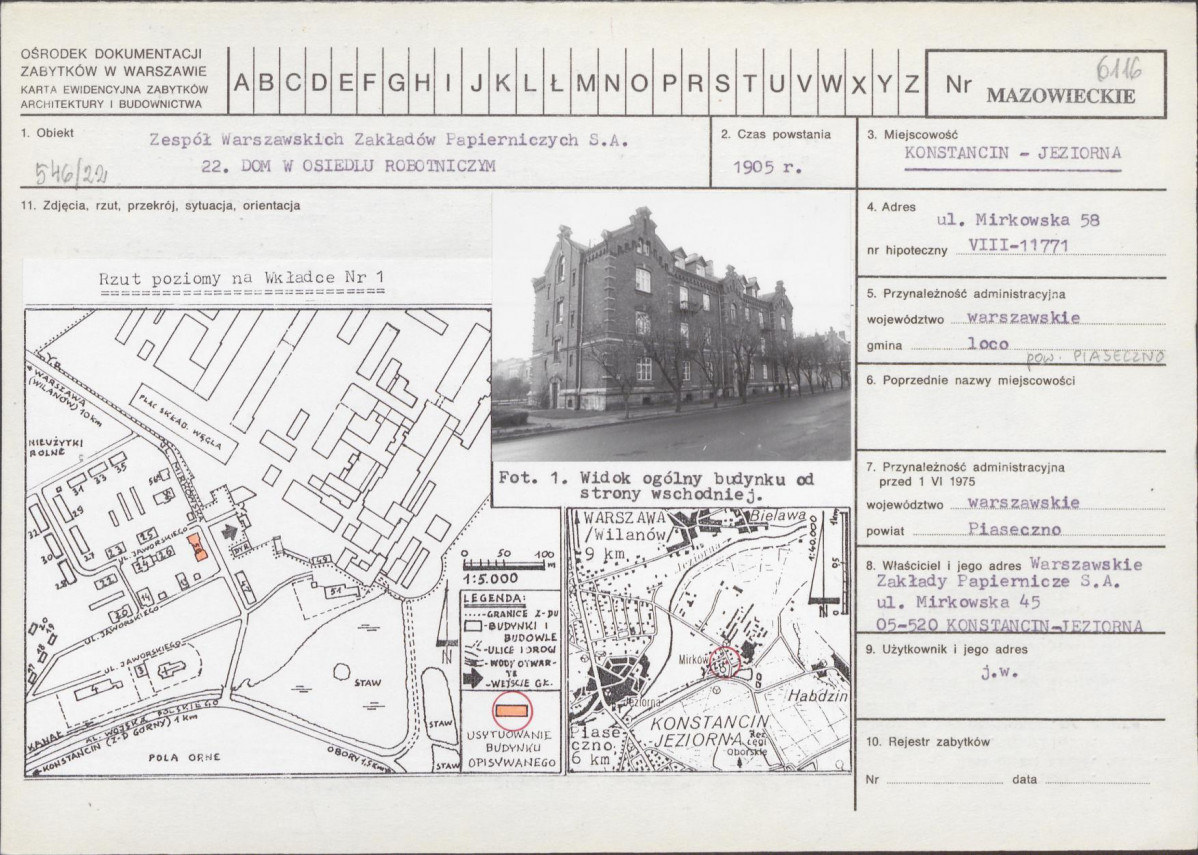 OŚRODEK DOKUMENTACJI
ZABYTKÓW W WARSZAWIE
KARTA EWIDENCYJNA ZABYTKÓW
ARCHITEKTURY I BUDOWNICTWA
A B C D E F G H I J K L Ł M N O P R S T U V W X Y Z
Nr 6116
MAZOWIECKIE
1. Obiekt
Zespół Warszawskich Zakładów Papierniczych S.A.
22. DOM W OSIEDLU ROBOTNICZYM
546/22
2. Czas powstania
1905 r.
3. Miejscowość
KONSTANCIN - JEZIORNA
4. Adres
ul. Mirkowska 58
nr hipoteczny VIII-11771
5. Przynależność administracyjna
województwo warszawskie
gmina loco
pow. PIASECZNO
6. Poprzednie nazwy miejscowości
7. Przynależność administracyjna
przed 1 VI 1975
województwo warszawskie
powiat Piaseczno
8. Właściciel i jego adres Warszawskie
Zakłady Papiernicze S.A.
ul. Mirkowska 45
05-520 KONSTANCIN-JEZIORNA
9. Użytkownik i jego adres
j.w.
10. Rejestr zabytków
Nr data
11. Zdjęcia, rzut, przekrój, sytuacja, orientacja
Rzut poziomy na Wkładce Nr 1
Fot. 1. Widok ogólny budynku od
strony wschodniej.
WARSZAWA
(WILANÓW) 10 km
PLAC SKŁAD. WĘGLA
NIEUŻYTKI
ROLNE
UL. MIRKOWSKA
35
33
31
29
32
30
28
27
23
25
UL. JAWORSKIEGO
24
26
22
14
20
47
49
51
DYR.
UL. JAWORSKIEGO
UL. JAWORSKIEGO
4
3
STAW
STAW
STAW
KANAŁ
AL. WOJSKA POLSKIEGO
KONSTANCIN (Z-D GÓRNY) 1 km
POLA ORNE
OBORY 1,5 km
0 50 100
m
1:5.000
N
LEGENDA:
-GRANICE Z-DU
-BUDYNKI I
BUDOWLE
-ULICE I DROGI
-WODY OTWAR-
TE
-WEJŚCIE GŁ.
USYTUOWANIE
BUDYNKU
OPISYWANEGO
WARSZAWA
/Wilanów/
9 km
Bielawa
Jeziorna
1:40.000
1km
0
N
Mirków
Jeziorna
Habdzin
KONSTANCIN
JEZIORNA
Piase
czno
6 km
Rez.
Łęgi
Oborskie